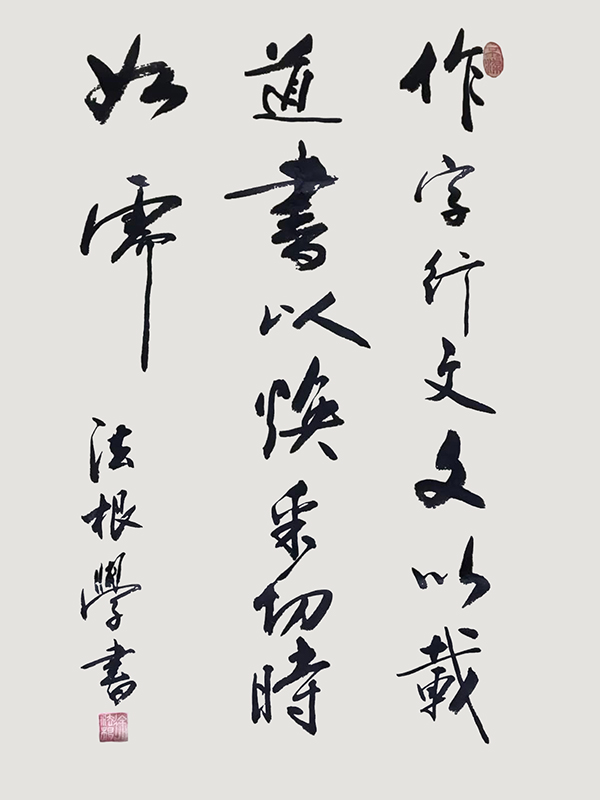 作字行文文以載
道書以煥采切時
如需
法根學書